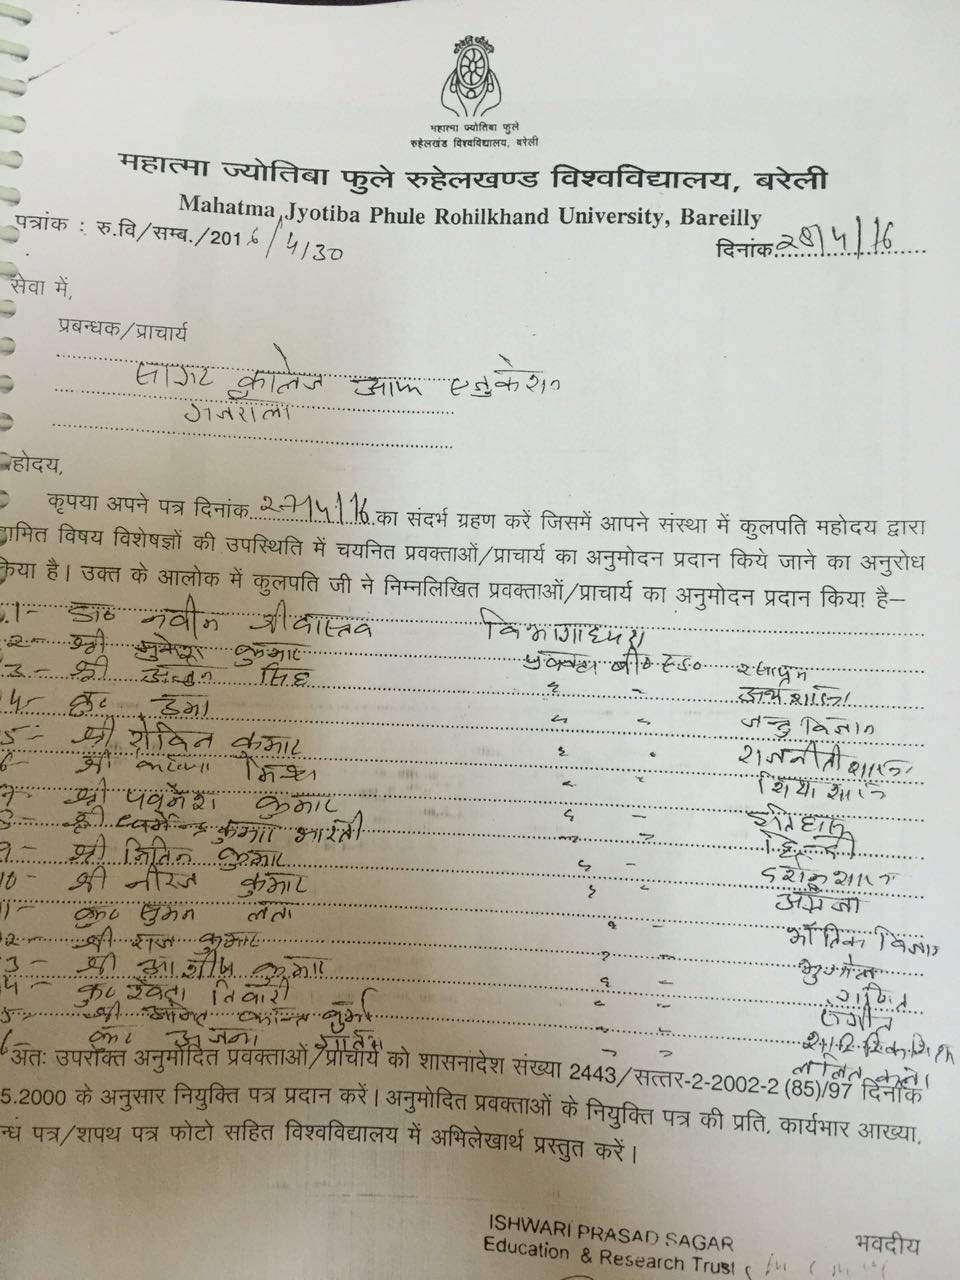 महात्मा ज्योतिबा फुले
रुहेलखंड विश्वविद्यालय, बरेली
महात्मा ज्योतिबा फुले रुहेलखण्ड विश्वविद्यालय, बरेली
Mahatma Jyotiba Phule Rohilkhand University, Bareilly
पत्रांक : रु.वि/सम्ब./2016/4/30
दिनांक 28/4/16
सेवा में,
प्रबन्धक/प्राचार्य
सागर कालेज आफ एजुकेशन
गजरौला
होदय,
कृपया अपने पत्र दिनांक 27/4/16 का संदर्भ ग्रहण करें जिसमें आपने संस्था में कुलपति महोदय द्वारा
नामित विषय विशेषज्ञों की उपस्थिति में चयनित प्रवक्ताओं/प्राचार्य का अनुमोदन प्रदान किये जाने का अनुरोध
किया है। उक्त के आलोक में कुलपति जी ने निम्नलिखित प्रवक्ताओं/प्राचार्य का अनुमोदन प्रदान किया है–
1- डा० नवीन श्रीवास्तव विभागाध्यक्ष
2- श्री कुमार प्रवक्ता बी०एड०
3- श्री सिंह अर्थशास्त्र
4- कु० उमा जन्तु विज्ञान
5- श्री रोबिन कुमार राजनीति शास्त्र
6- श्री
7- श्री कुमार इतिहास
श्री धर्मेन्द्र कुमार भारती हिन्दी
9- श्री नितिन कुमार
10- श्री नीरज कुमार
कु० सुमन लता भौतिक विज्ञान
श्री राज कुमार भूगोल
3- श्री आशीष कुमार गणित
कु० श्वेता तिवारी संगीत
श्री वर्मा
कु० ललित कला
अतः उपरोक्त अनुमोदित प्रवक्ताओं/प्राचार्य को शासनादेश संख्या 2443/सत्तर-2-2002-2 (85)/97 दिनांक
5.2000 के अनुसार नियुक्ति पत्र प्रदान करें। अनुमोदित प्रवक्ताओं के नियुक्ति पत्र की प्रति, कार्यभार आख्या,
न्ध पत्र/शपथ पत्र फोटो सहित विश्वविद्यालय में अभिलेखार्थ प्रस्तुत करें।
भवदीय
ISHWARI PRASAD SAGAR
Education & Research Trust